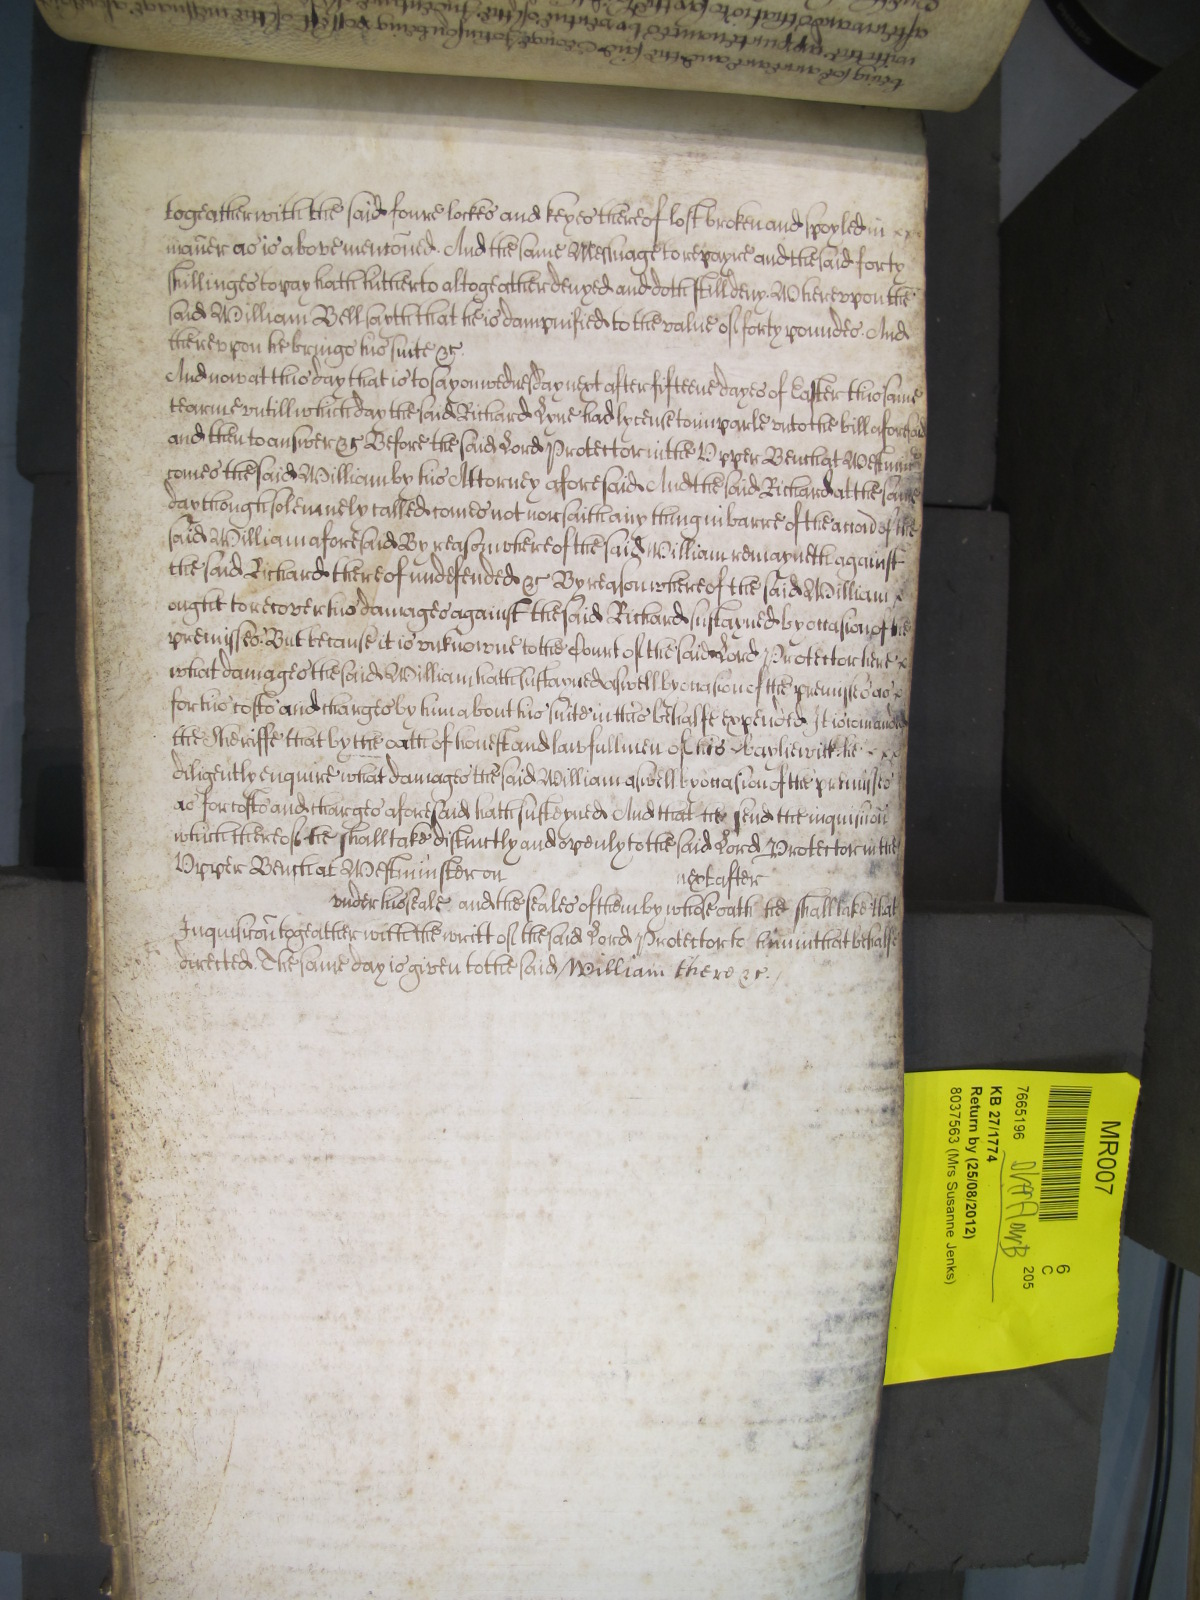 togeather with the said foure lockes and keyes thereof lost broken and spoyled in
man̄er as is above menc̄oned. And the same Messuage to repayre and the said forty
shillinges to pay hath hitherto altogeather denyed and doth still deny. Wherevpon the
said William Bell sayth that he is dampnified to the value of forty poundes. And
therevpon he bringes his suite &c.
And now at this day that is to say on wednesday next after fifteene dayes of Easter this same
tearme vntill which day the said Richard Lyne had lycense to imparle vnto the bill aforesaid
and then to answer &c Before the said Lord Protector in the Vpper Bench at Westmin̄
comes the said William by his Attorney aforesaid. And the said Richard at the same
day though solemnely called comes not nor saith any thing in barre of the acc̄on of the
said William aforesaid By reason whereof the said William remayneth against
the said Richard thereof undefended &c By reason whereof the said William
ought to recover his damages against the said Richard sustayned by occasion of the
premisses. But because it is vnknowne to the Court of the said Lord Protector here
what damages the said William hath sustayned aswell by occasion of the premisses as
for his costs and charges by him about his suite in this behalfe expended It is com̄anded
the Sheriffe that by the oath of honest and lawfull men of his bayliewick he
diligently enquire what damages the said William aswell by occasion of the premisses
as for costs and charges aforesaid hath susteyned. And that he send the inquisic̄on
which thereof he shall take distinctly and openly to the said Lord Protector in the
Vpper Bench at Westminster on next after
under his seale and the seales of them by whose oath he shall take that
Inquisic̄on togeather with the writt of the said Lord Protector to him in that behalfe
directed. The same day is given to the said William there &c.
MR007
6
C
205
7665196
KB 27/1774
Return by (25/08/2012)
8037563 (Mrs Susanne Jenks)